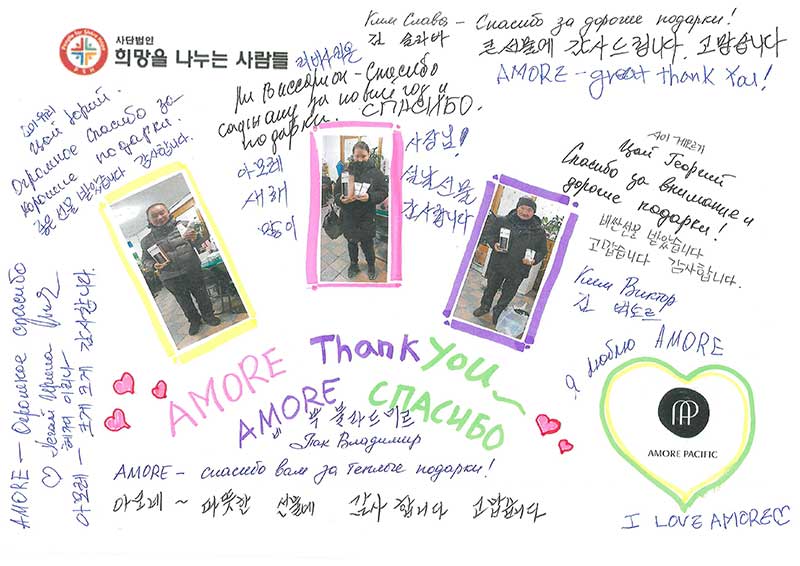 People for Share Hope
P S H
사단법인
희망을 나누는 사람들
Ким Слава – Спасибо за дорогие подарки!
김 슬라바
큰선물에 감사드립니다. 고맙습니다
AMORE – great thank You!
Ли Виссарион – Спасибо
за новий год и
подарки. СПАСИБО.
아모레
새해
사장님!
설날선물
감사합니다
Цой Юрий.
Огромное Спасибо за
хорошие подарки.
좋은 선물 받았습니다 감사합니다.
Цай Георгий
Спасибо за внимание и
дорогие подарки!
비싼선물 받았습니다
고맙습니다 감사합니다.
Ким Виктор
김 빅토르
AMORE – Огромное спасибо
Ирина
아모레 – 크게 크게 감사합니다.
AMORE Thank You
AMORE СПАСИБО
블라드미르
Пак Владимир
AMORE – спасибо вам за теплые подарки!
아모레 ~ 따뜻한 선물에 감사 합니다 고맙습니다
Я люблю AMORE
AP
AMORE PACIFIC
I LOVE AMORE♡